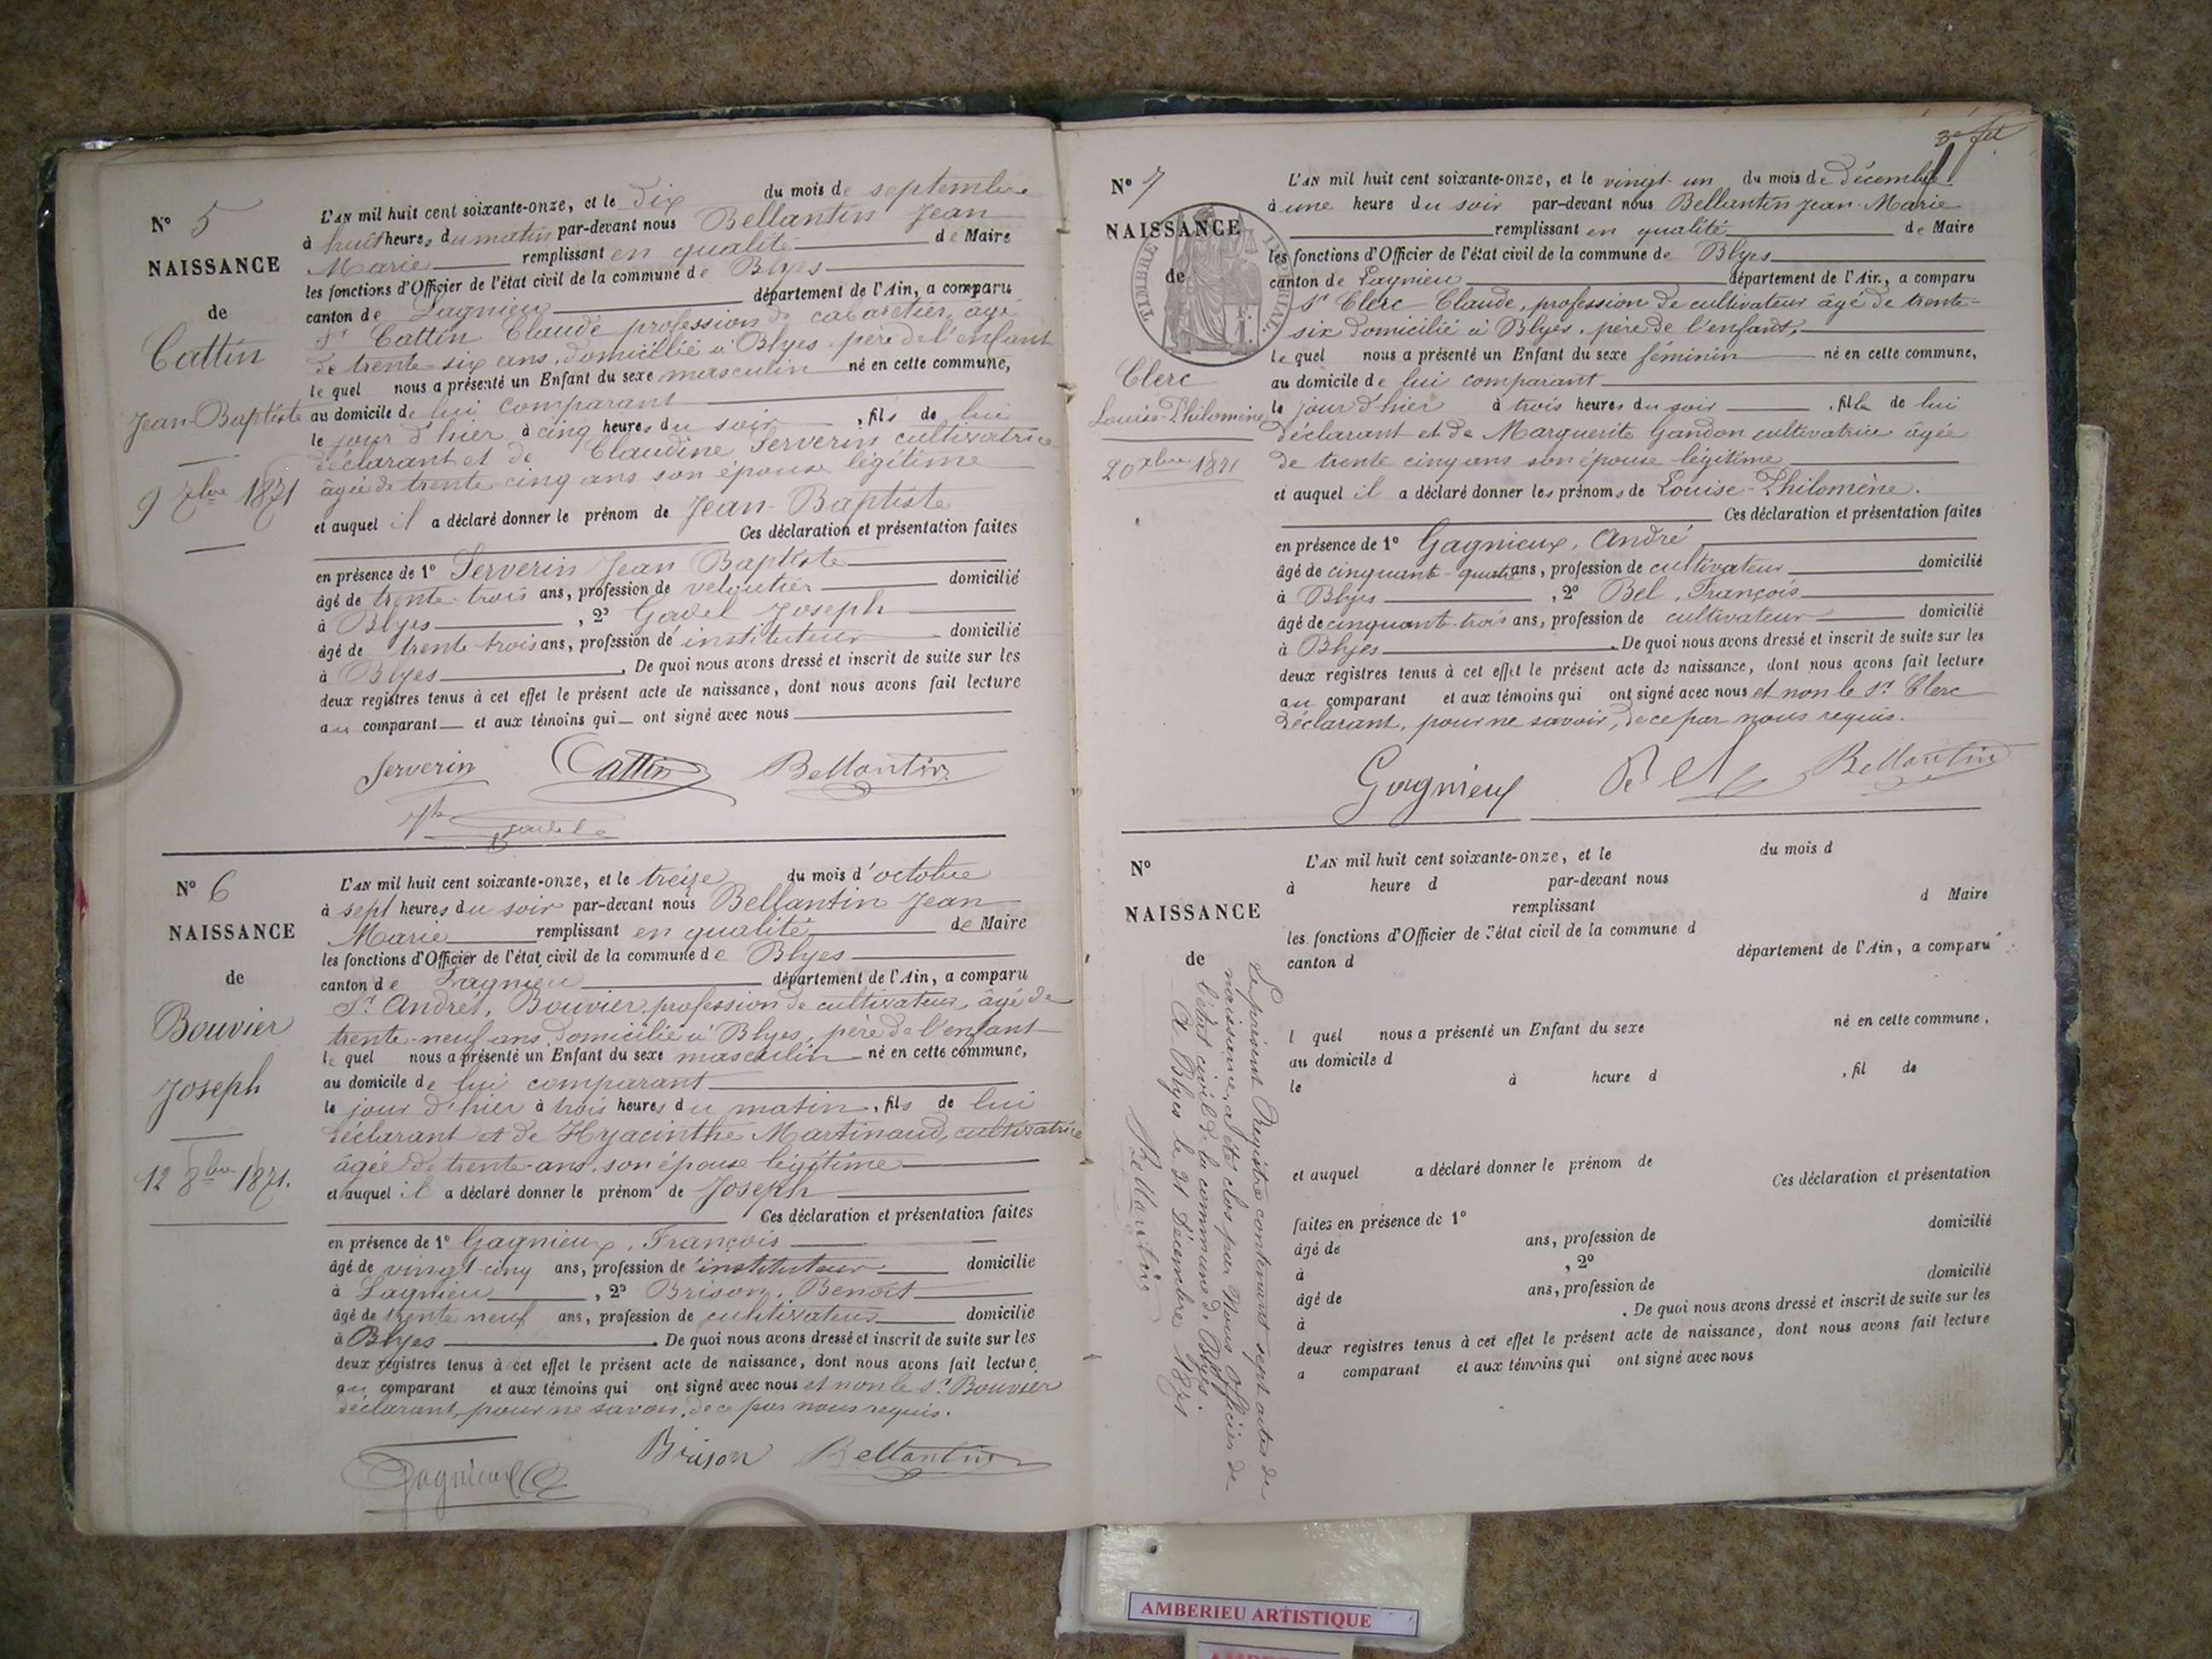 N° 5
NAISSANCE
de
Cattin
Jean-Baptiste
9 7bre 1871
L'AN mil huit cent soixante-onze, et le dix du mois de septembre
à huit heures du matin par-devant nous Bellantin Jean
Marie remplissant en qualité de Maire
les fonctions d'Officier de l'état civil de la commune de Blyes
canton de Lagnieu département de l'Ain, a comparu
Sr Cattin Claude profession de cabaretier âgé
de trente-six ans, domicilié à Blyes père de l'enfant
le quel nous a présenté un Enfant du sexe masculin né en cette commune,
au domicile de lui comparant
le jour d'hier à cinq heures du soir, fils de lui
déclarant et de Claudine Serverin cultivatrice
âgée de trente-cinq ans son épouse légitime
et auquel il a déclaré donner le prénom de Jean-Baptiste
Ces déclaration et présentation faites
en présence de 1° Serverin Jean Baptiste
âgé de trente-trois ans, profession de veloutier domicilié
à Blyes, 2° Gavel Joseph
âgé de trente-trois ans, profession de instituteur domicilié
à Blyes. De quoi nous avons dressé et inscrit de suite sur les
deux registres tenus à cet effet le présent acte de naissance, dont nous avons fait lecture
au comparant et aux témoins qui ont signé avec nous
Serverin Cattin Bellantin
N° 6
NAISSANCE
de
Bouvier
Joseph
12 8bre 1871.
L'AN mil huit cent soixante-onze, et le treize du mois d'octobre
à sept heures du soir par-devant nous Bellantin Jean
Marie remplissant en qualité de Maire
les fonctions d'Officier de l'état civil de la commune de Blyes
canton de Lagnieu département de l'Ain, a comparu
Sr Andrés, Bouvier, profession de cultivateur, âgé de
trente-neuf ans, domicilié à Blyes, père de l'enfant
le quel nous a présenté un Enfant du sexe masculin né en cette commune,
au domicile de lui comparant
le jour d'hier à trois heures du matin, fils de lui
déclarant et de Hyacinthe Martinaud, cultivatrice
âgée de trente-ans, son épouse légitime
et auquel il a déclaré donner le prénom de Joseph
Ces déclaration et présentation faites
en présence de 1° Gagnieux, François
âgé de vingt-cinq ans, profession de instituteur domicilié
à Lagnieu, 2° Brison, Benoît
âgé de trente neuf ans, profession de cultivateur domicilié
à Blyes. De quoi nous avons dressé et inscrit de suite sur les
deux registres tenus à cet effet le présent acte de naissance, dont nous avons fait lecture
au comparant et aux témoins qui ont signé avec nous et non le Sr Bouvier
déclarant, pour ne savoir, de ce par nous requis.
Gagnieux Brison Bellantin
N° 7
NAISSANCE
de
TIMBRE IMPÉRIAL
Clerc
Louise-Philomène
20 xbre 1871
L'AN mil huit cent soixante-onze, et le vingt-un du mois de décembre
à une heure du soir par-devant nous Bellantin Jean-Marie
remplissant en qualité de Maire
les fonctions d'Officier de l'état civil de la commune de Blyes
canton de Lagnieu département de l'Ain, a comparu
Sr Clerc Claude, profession de cultivateur âgé de trente-
six domicilié à Blyes, père de l'enfant,
le quel nous a présenté un Enfant du sexe féminin né en cette commune,
au domicile de lui comparant
le jour d'hier à trois heures du soir, fille de lui
déclarant et de Marguerite Gandon cultivatrice âgée
de trente cinq ans son épouse légitime
et auquel il a déclaré donner les prénoms de Louise-Philomène.
Ces déclaration et présentation faites
en présence de 1° Gagnieux, André
âgé de cinquante-quatre ans, profession de cultivateur domicilié
à Blyes, 2° Bel, François
âgé de cinquante-trois ans, profession de cultivateur domicilié
à Blyes. De quoi nous avons dressé et inscrit de suite sur les
deux registres tenus à cet effet le présent acte de naissance, dont nous avons fait lecture
au comparant et aux témoins qui ont signé avec nous et non le Sr Clerc
déclarant, pour ne savoir, de ce par nous requis.
Gagnieux Bel Bellantin
N°
NAISSANCE
de
L'AN mil huit cent soixante-onze, et le du mois d
à heure d par-devant nous
remplissant d Maire
les fonctions d'Officier de l'état civil de la commune d
canton d département de l'Ain, a comparu
l quel nous a présenté un Enfant du sexe né en cette commune,
au domicile d
le à heure d , fil de
et auquel a déclaré donner le prénom de
Ces déclaration et présentation
faites en présence de 1°
âgé de ans, profession de domicilié
à , 2°
âgé de ans, profession de domicilié
à . De quoi nous avons dressé et inscrit de suite sur les
deux registres tenus à cet effet le présent acte de naissance, dont nous avons fait lecture
a comparant et aux témoins qui ont signé avec nous
Le présent Registre contenant sept actes de
naissance, a été clos par Nous Officier de
l'état civil de la commune de Blyes.
A Blyes le 31 Décembre 1871
Bellantin
AMBERIEU ARTISTIQUE